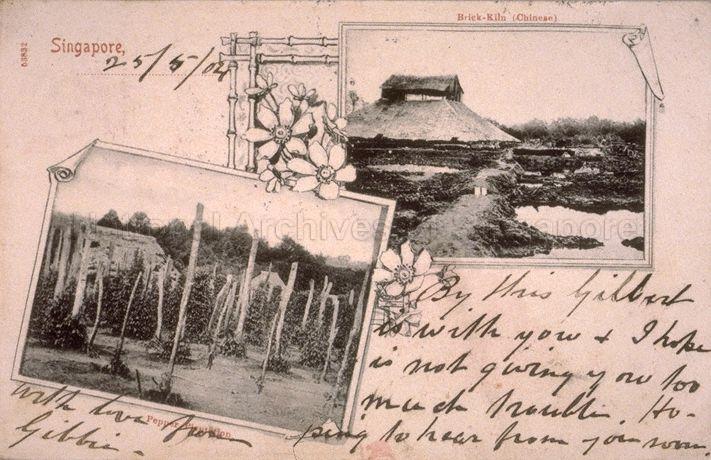 Brick-Kiln (Chinese)
53832
Singapore,
25/5/04
National Archives of Singapore
By this Gilbert
is with you & I hope
is not giving you too
much trouble. Ho-
ping to hear from you soon.
with love from
Gibbie.
Pepper Plantation